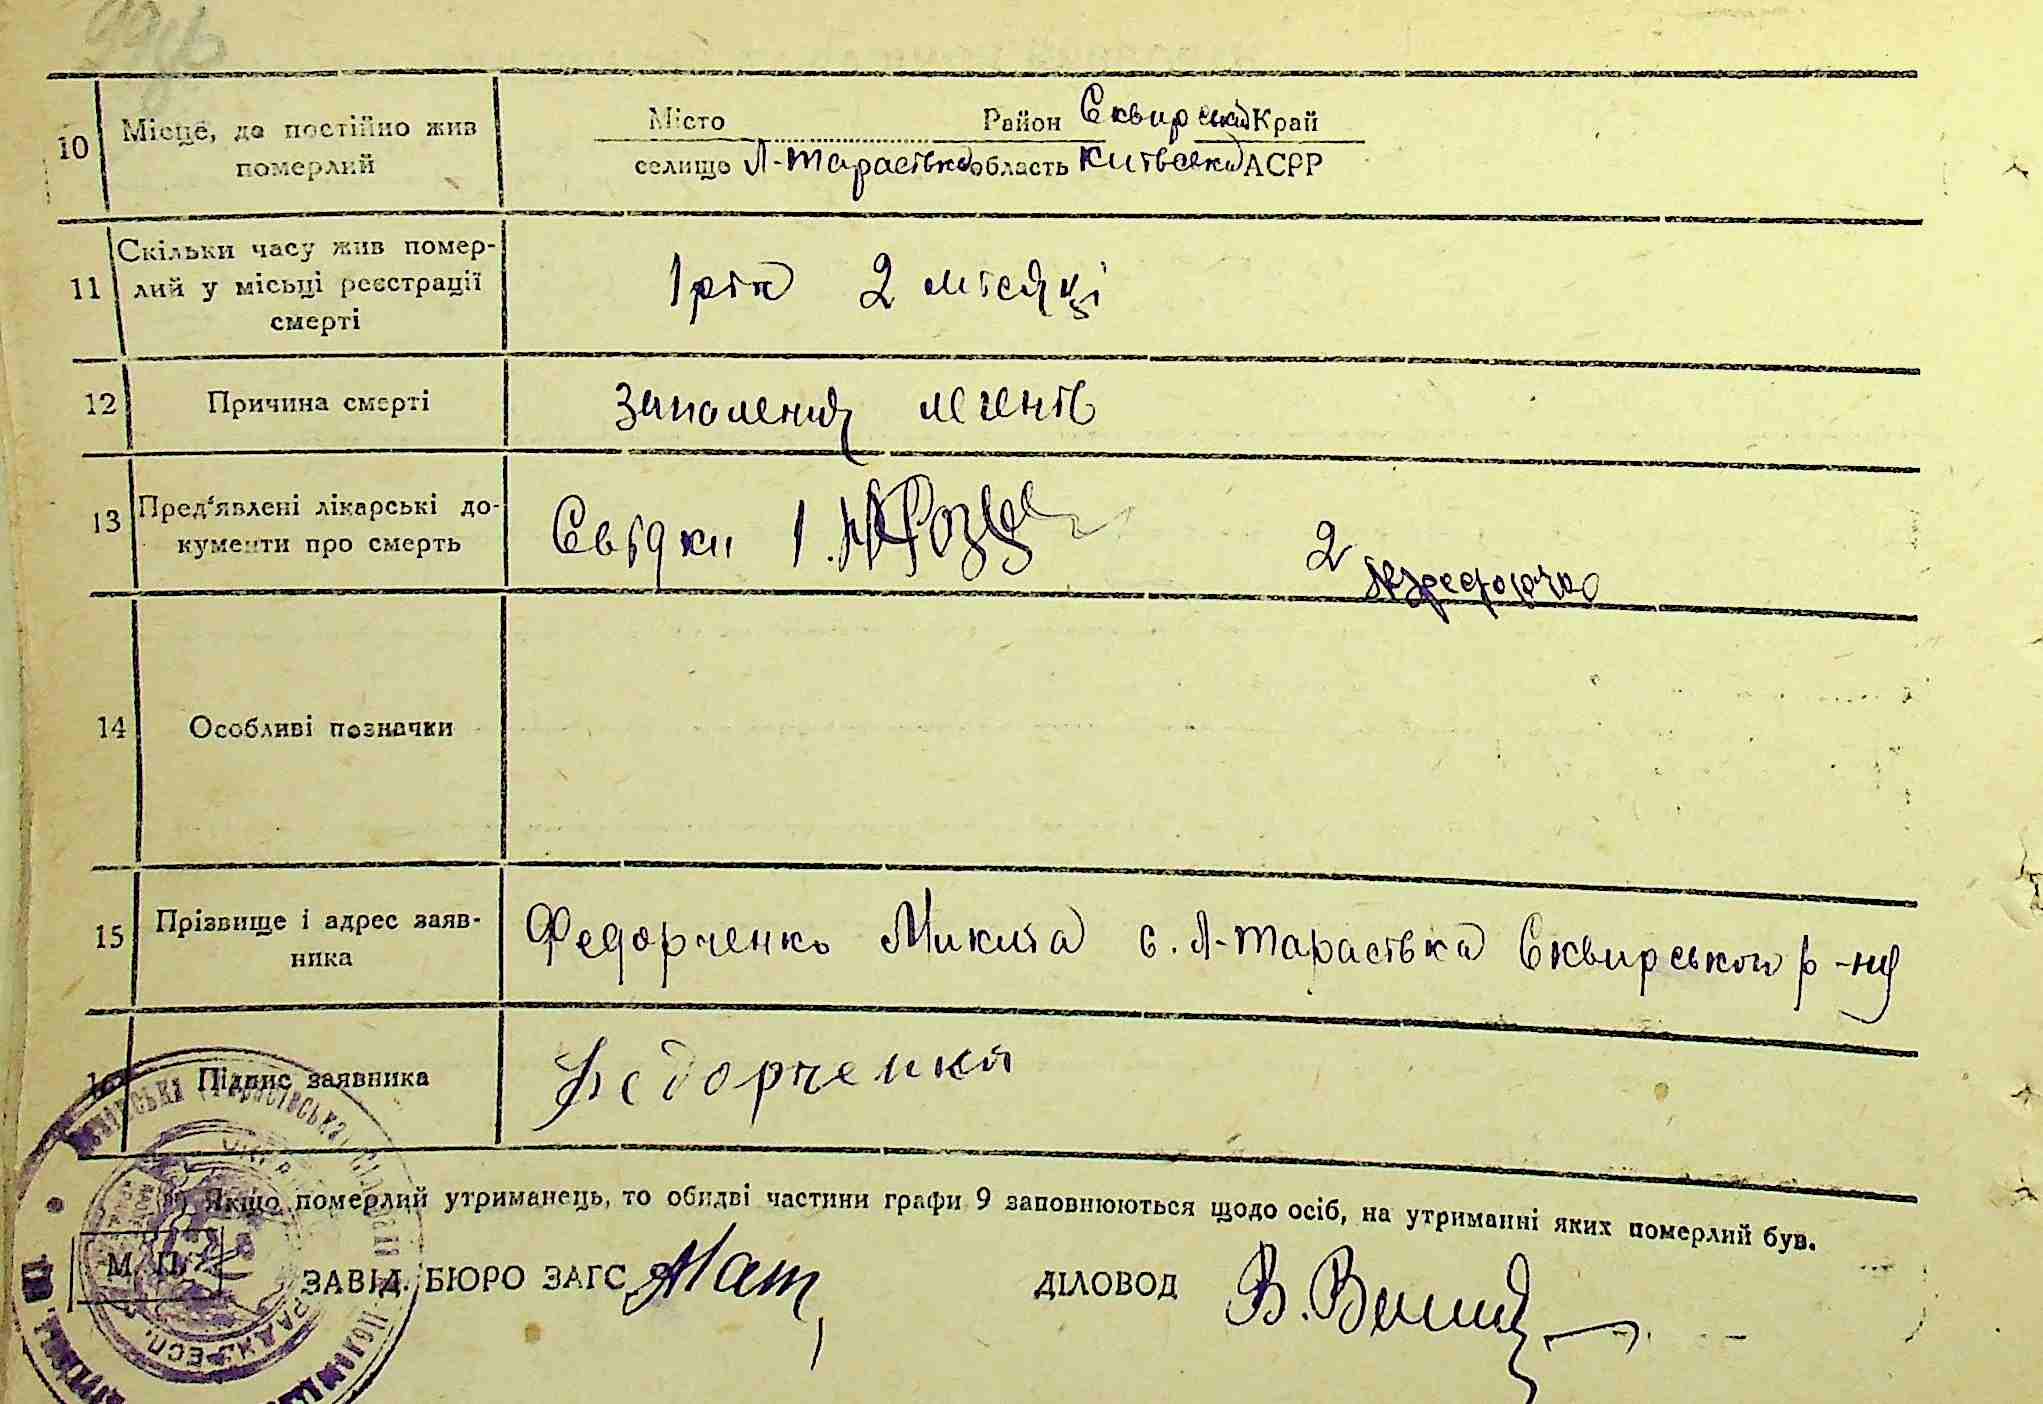 10 Місце, де постійно жив померлий
Місто Район Сквирський Край
селище Л-Тарасівка область Київська АСРР
11 Скільки часу жив помер-
лий у місьці реєстрації
смерті
1 рік 2 місяці
12 Причина смерті
Заполення легенів
13 Пред'явлені лікарські до-
кументи про смерть
Свідки 1. 2
14 Особливі позначки
15 Прізвище і адрес заяв-
ника
Федорченко Микита с. Л-Тарасівка Сквирського р-ну
16 Підпис заявника
Федорченко
*) Якщо померлий утриманець, то обидві частини графи 9 заповнюються щодо осіб, на утриманні яких померлий був.
М. П.
ЗАВІД. БЮРО ЗАГС
ДІЛОВОД